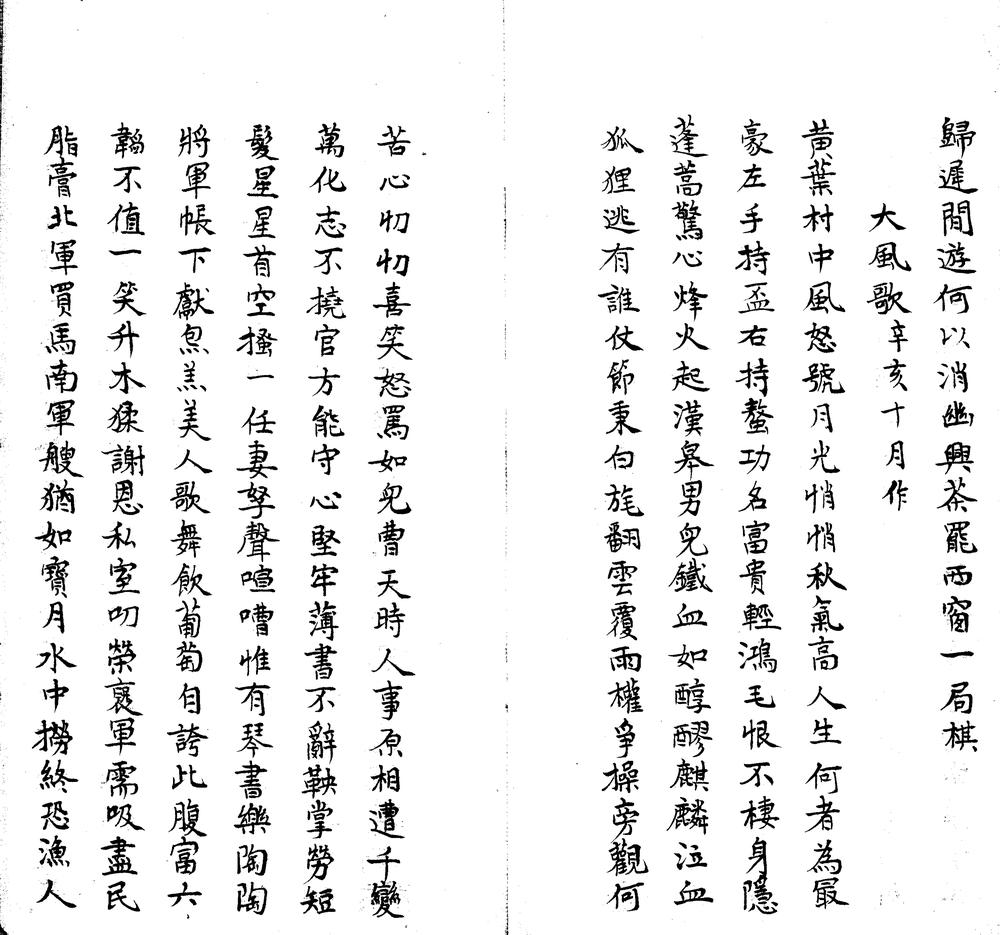 歸遲閒遊何以消幽興茶罷西窗一局棋
大風歌辛亥十月作
黃葉村中風怒號月光悄悄秋氣高人生何者為最
豪左手持盃右持螯功名富貴輕鴻毛恨不棲身隱
蓬蒿驚心烽火起漢皋男兒鐵血如醇醪麒麟泣血
狐狸逃有誰仗節秉白旄翻雲覆雨權爭操旁觀何
苦心忉忉喜笑怒罵如兒曹天時人事原相遭千變
萬化志不撓官方能守心堅牢薄書不辭鞅掌勞短
髮星星首空搔一任妻孥聲喧嘈惟有琴書樂陶陶
將軍帳下獻炰羔美人歌舞飲葡萄自誇此腹富六
韜不值一笑升木猱謝恩私室叨榮褒軍需吸盡民
脂膏北軍買馬南軍艘猶如寶月水中撈終恐漁人